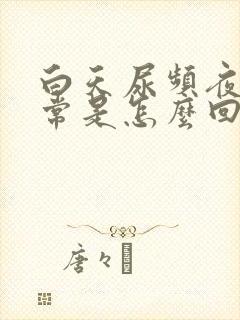 白天尿頻夜
常是怎麼回
唐々